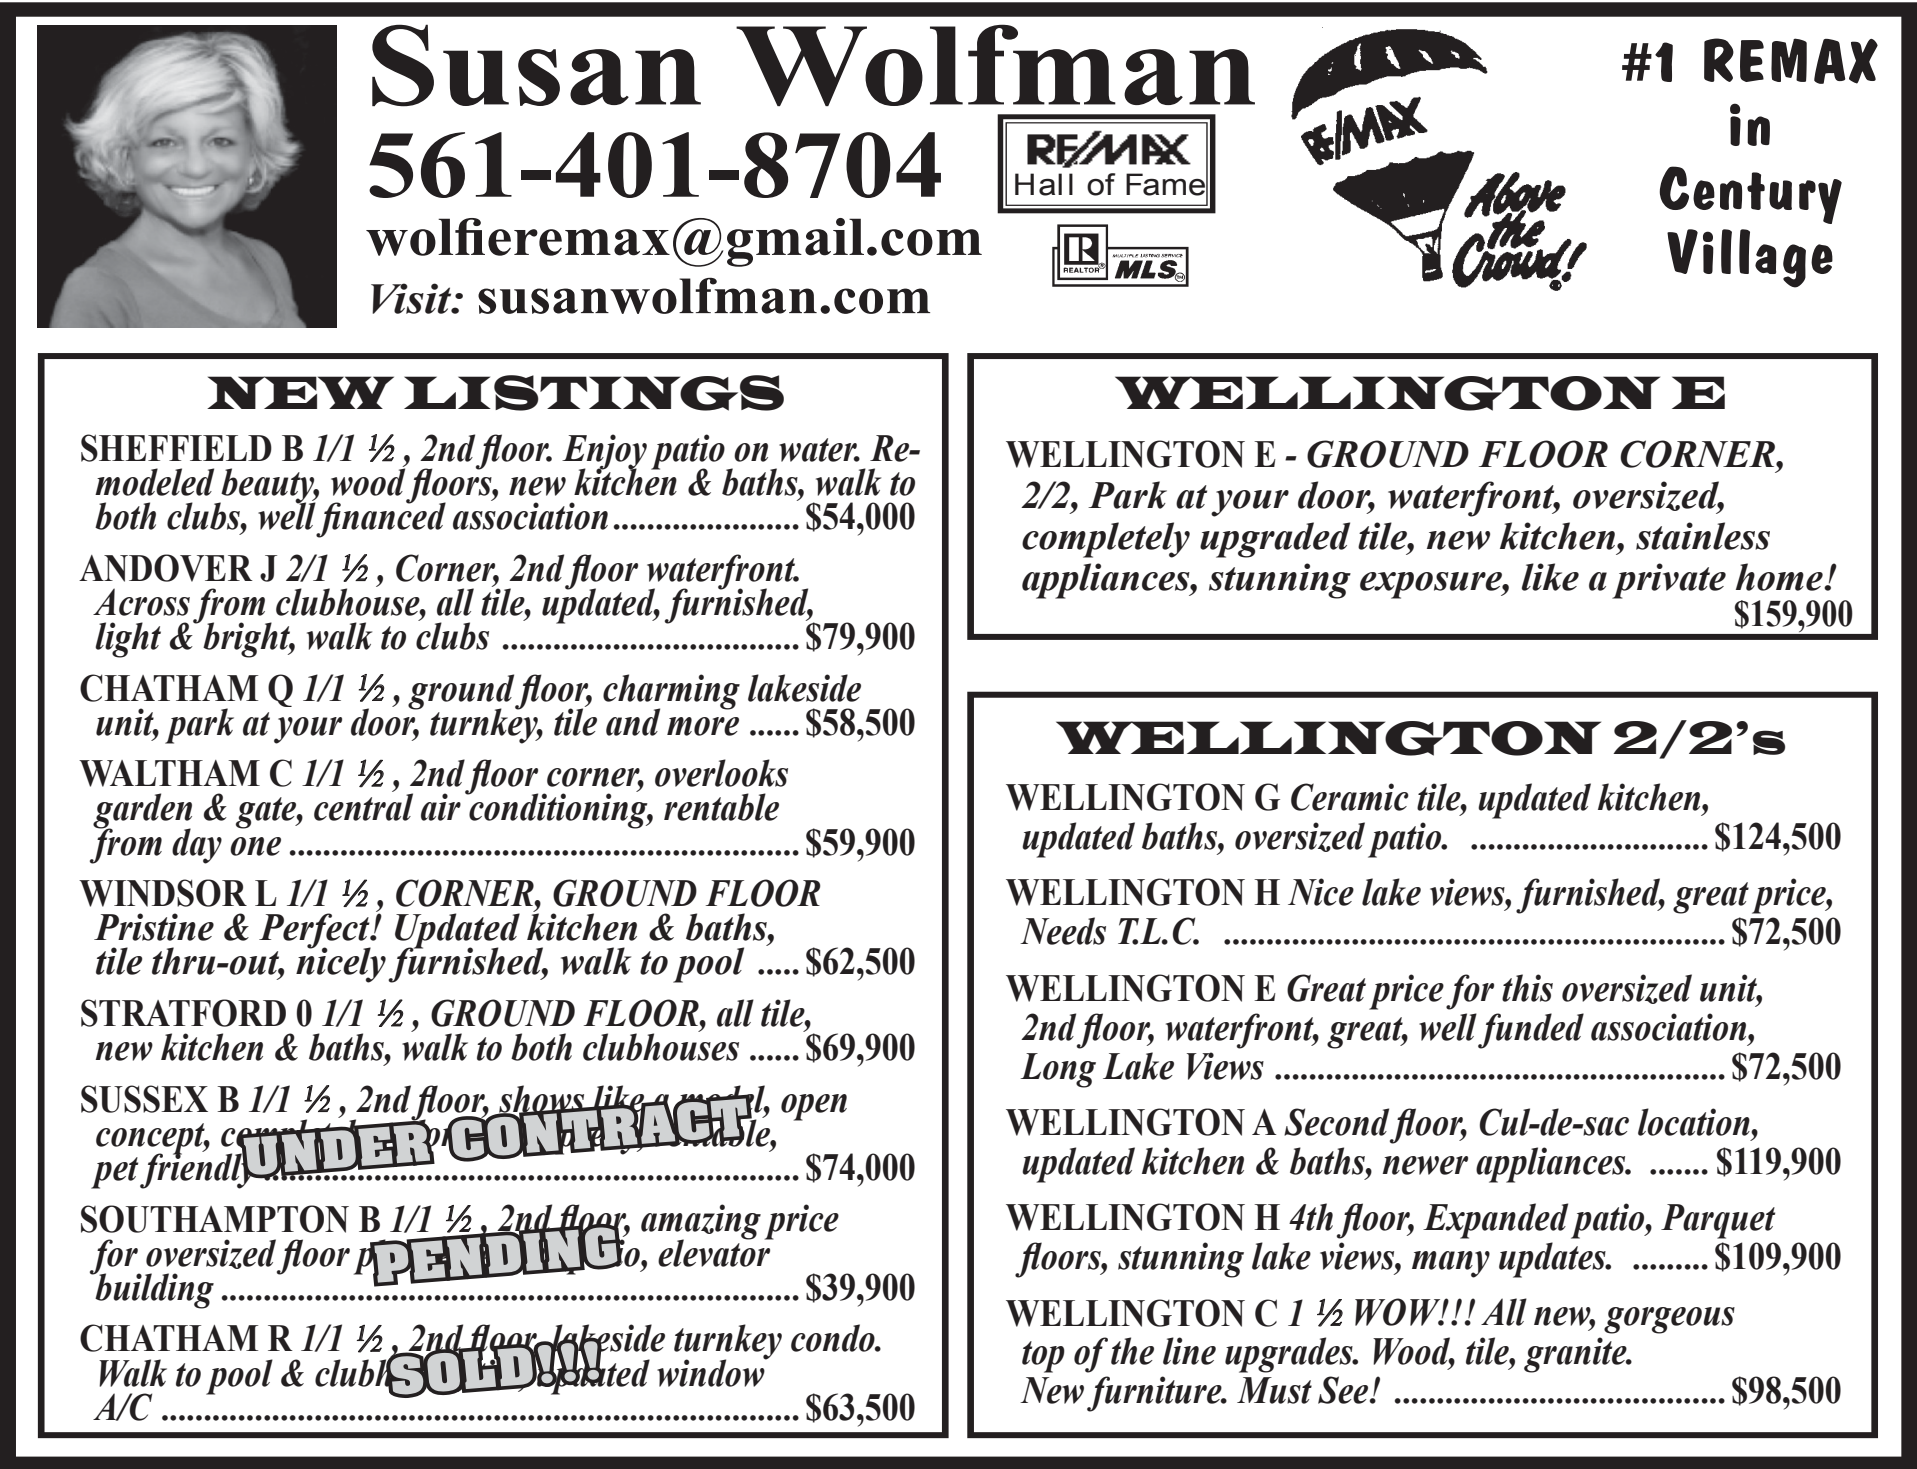 Susan Wolfman
561-401-8704
wolfieremax@gmail.com
Visit: susanwolfman.com
RE/MAX
Hall of Fame
REALTOR®
MULTIPLE LISTING SERVICE
MLS
RE/MAX
Above
the
Crowd!
#1 REMAX
in
Century
Village
NEW LISTINGS
SHEFFIELD B 1/1 ½ , 2nd floor. Enjoy patio on water. Re-
modeled beauty, wood floors, new kitchen & baths, walk to
both clubs, well financed association...................... $54,000
ANDOVER J 2/1 ½ , Corner, 2nd floor waterfront.
Across from clubhouse, all tile, updated, furnished,
light & bright, walk to clubs ................................... $79,900
CHATHAM Q 1/1 ½ , ground floor, charming lakeside
unit, park at your door, turnkey, tile and more ...... $58,500
WALTHAM C 1/1 ½ , 2nd floor corner, overlooks
garden & gate, central air conditioning, rentable
from day one ............................................................ $59,900
WINDSOR L 1/1 ½ , CORNER, GROUND FLOOR
Pristine & Perfect! Updated kitchen & baths,
tile thru-out, nicely furnished, walk to pool ..... $62,500
STRATFORD 0 1/1 ½ , GROUND FLOOR, all tile,
new kitchen & baths, walk to both clubhouses ...... $69,900
SUSSEX B 1/1 ½ , 2nd floor, shows like a model, open
concept,
UNDER CONTRACT
pet friendly ............................................................... $74,000
SOUTHAMPTON B 1/1 ½ , 2nd floor, amazing price
for oversized floor elevator
PENDING
building .................................................................... $39,900
CHATHAM R 1/1 ½ , 2nd floor, lakeside turnkey condo.
Walk to pool & window
SOLD!!!
A/C ........................................................................... $63,500
WELLINGTON E
WELLINGTON E - GROUND FLOOR CORNER,
2/2, Park at your door, waterfront, oversized,
completely upgraded tile, new kitchen, stainless
appliances, stunning exposure, like a private home!
$159,900
WELLINGTON 2/2’s
WELLINGTON G Ceramic tile, updated kitchen,
updated baths, oversized patio. ............................ $124,500
WELLINGTON H Nice lake views, furnished, great price,
Needs T.L.C. ........................................................... $72,500
WELLINGTON E Great price for this oversized unit,
2nd floor, waterfront, great, well funded association,
Long Lake Views ..................................................... $72,500
WELLINGTON A Second floor, Cul-de-sac location,
updated kitchen & baths, newer appliances. ....... $119,900
WELLINGTON H 4th floor, Expanded patio, Parquet
floors, stunning lake views, many updates. ......... $109,900
WELLINGTON C 1 ½ WOW!!! All new, gorgeous
top of the line upgrades. Wood, tile, granite.
New furniture. Must See! ....................................... $98,500